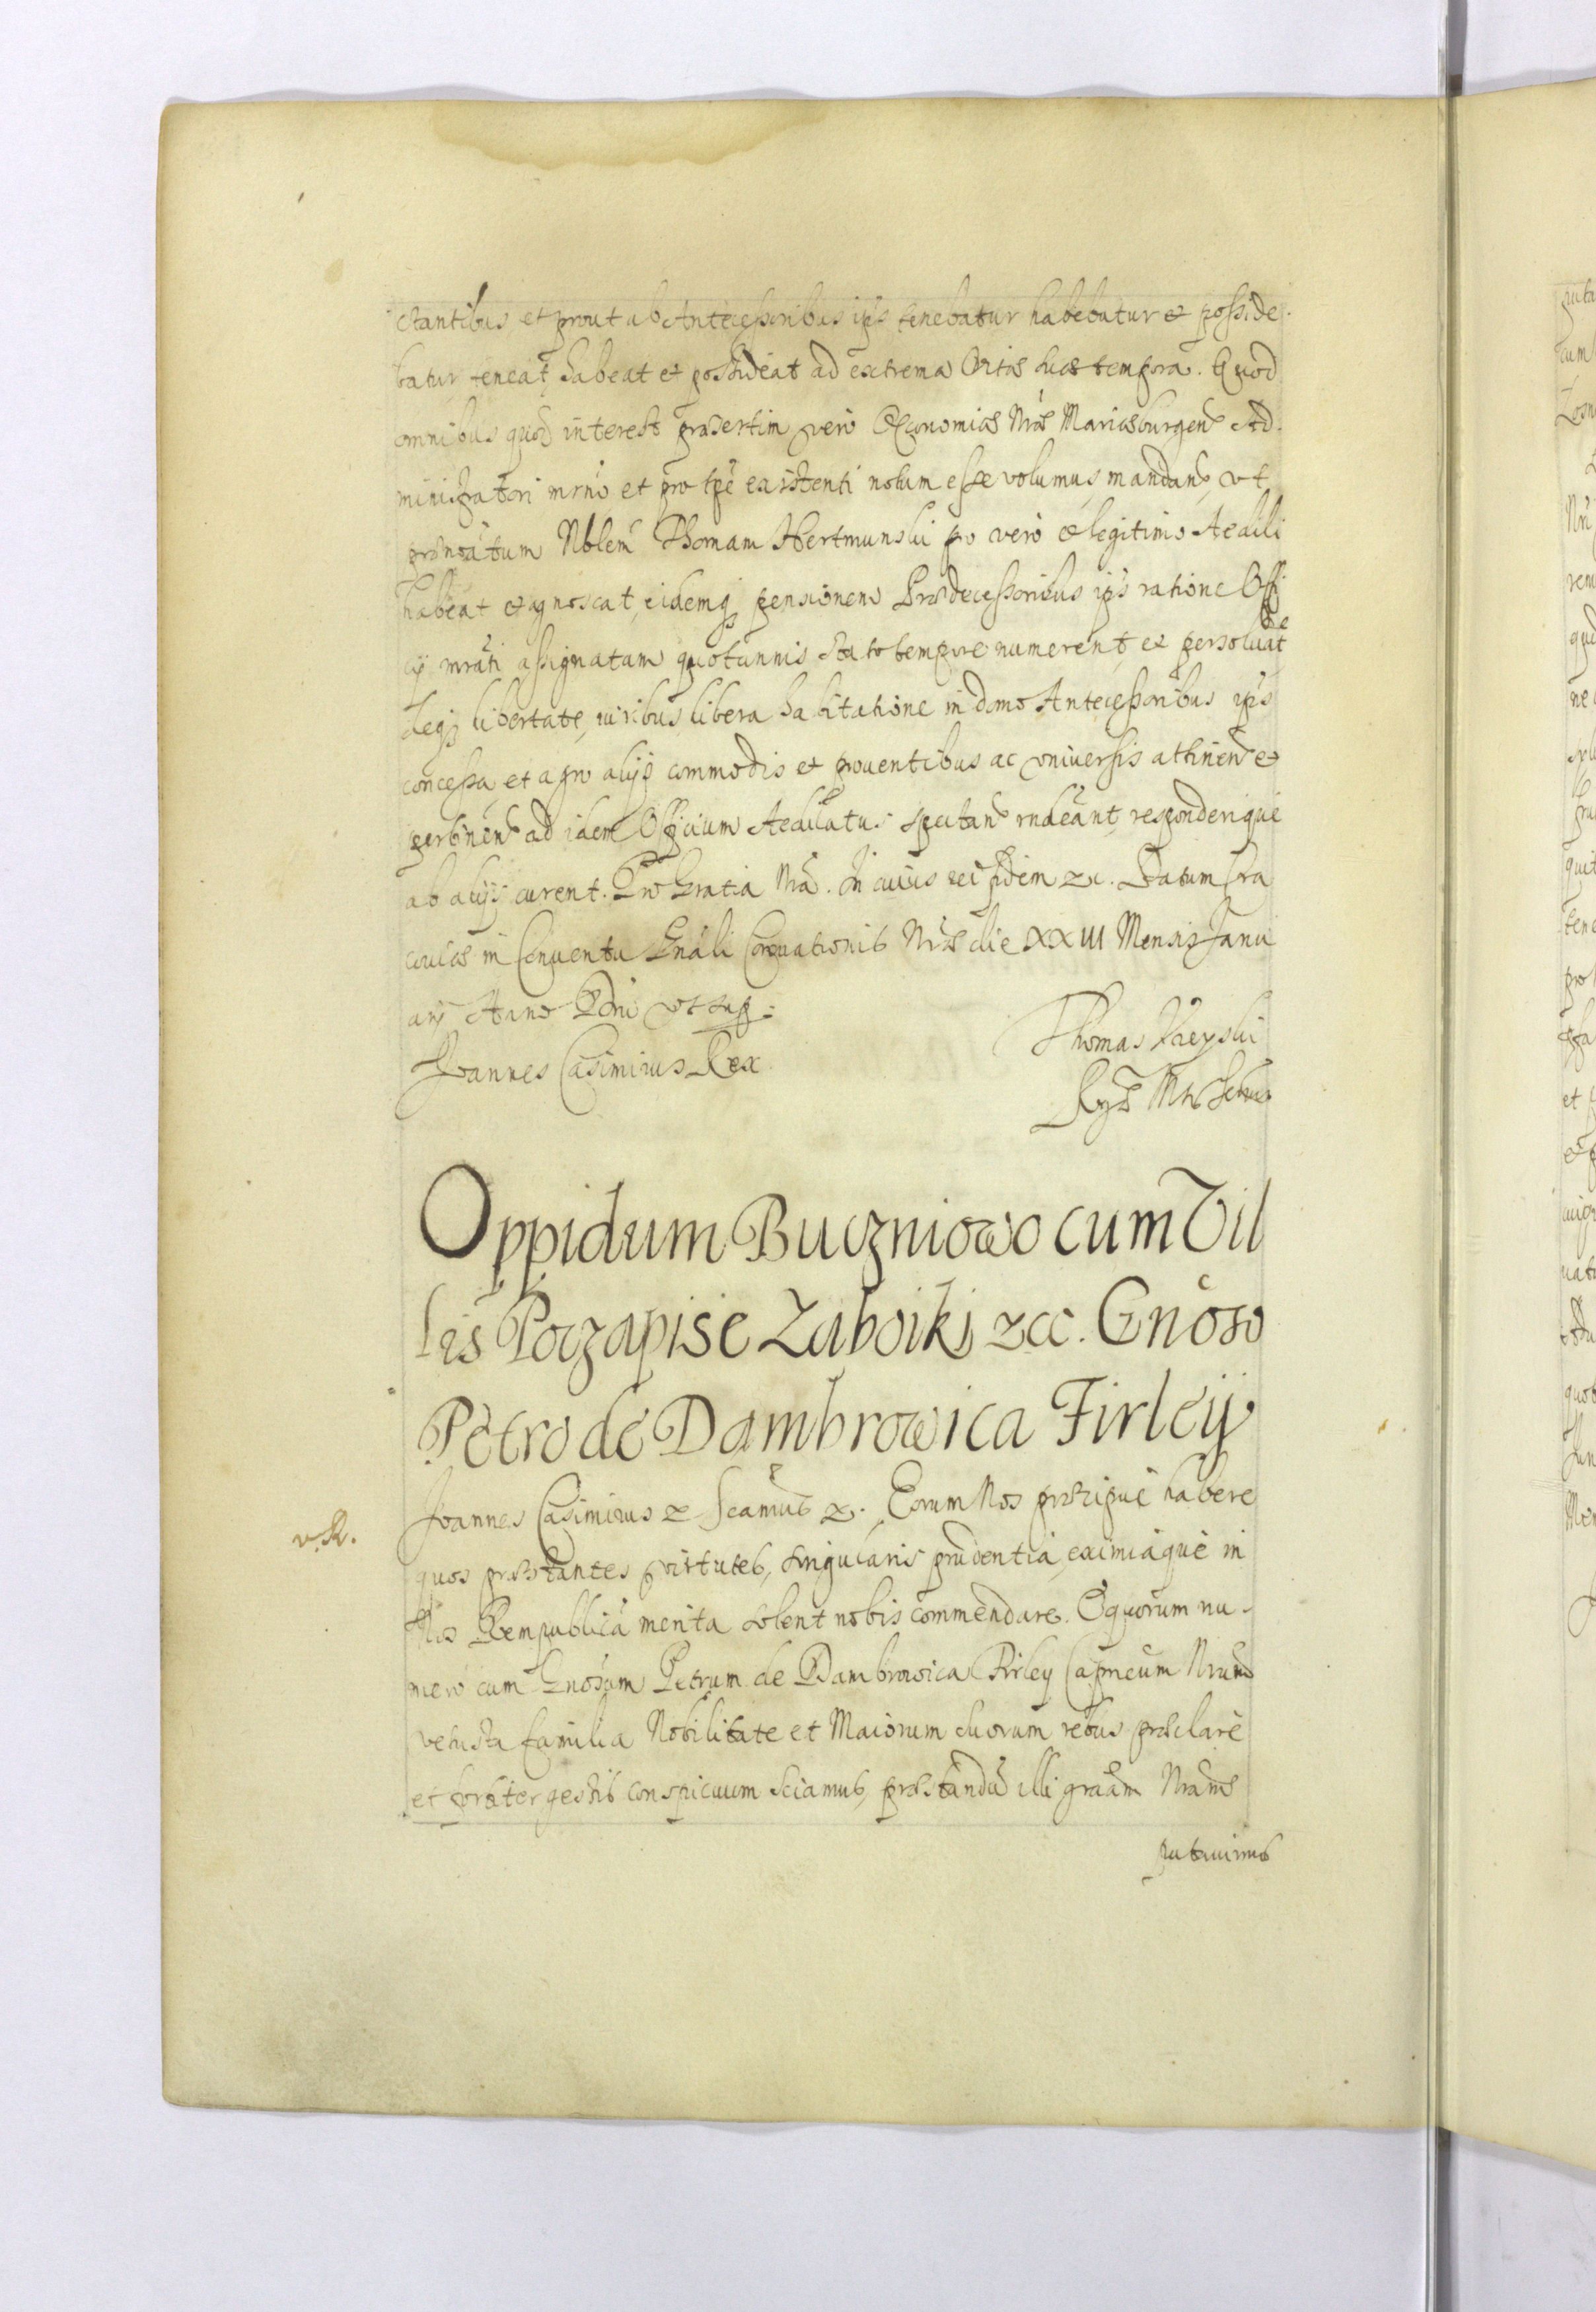 ctantibus et prout ab Antecessoribus ip̃s tenebatur habebatur et posside.
batur, teneat, habeat et possideat ad extrema vitæ suæ tempora. Quod
omnibus quor̃ interest præsertim vero Œconomiæ Nræ Mariæburgen̄ Ad.
ministratori mrño et pro tp̃e existenti notum esse volumus, mandan̄, vt
prænõatum Noblem̃ Thomam Hertmunski pro vero et legitimo Aedili
habeat et agnoscat, eidemq̨ pensionem Prædecessoribus ip̃s ratione Offi
cij mrãti assignatam quotannis stato tempore numerent, et persoluãt
deq̨ libertate, iuribus, libera habitatione in domo Antecessoribus ip̃s
concessa, et agro alijsq̨ commodis et prouentibus ac vniuersis attinen̄ et
pertinen̄ ad idem Officium Aedilatus spectan̄ rndeãnt, responderique
ab alijs curent. Pro Gratia Nrã. In cuius rei fidem &c. Datum Cra
couiæ in Conuentu Gnãli Coronationis Nræ die XXIII Mensis Janu
arij Anno Dñi vt sup:
Joannes Casimirus Rex.
Thomas Vieyski
Rgæ Mtis Secrius
Oppidum Buczniowo cum Vil
lis Poczapisie Zaboiki &cc. Gnõso
Petro de Dambrowica Firleij
v.R.
Joannes Casimirus & Scamus &. Eorum Nos præcipuè habere
quos præstantes virtutes, singularis prudentia, eximiaquè in
Nos Rempublicã merita solent nobis commendare. E quorum nu-
mero cum Gnõsum Petrum de Dambrowica Firley Capneum Nrum
vetusta familia Nobilitate et Maiorum suorum rebus præclarè
et fortiter gestis conspicuum sciamus, præstandã illi grãam Nrãm
putauimus